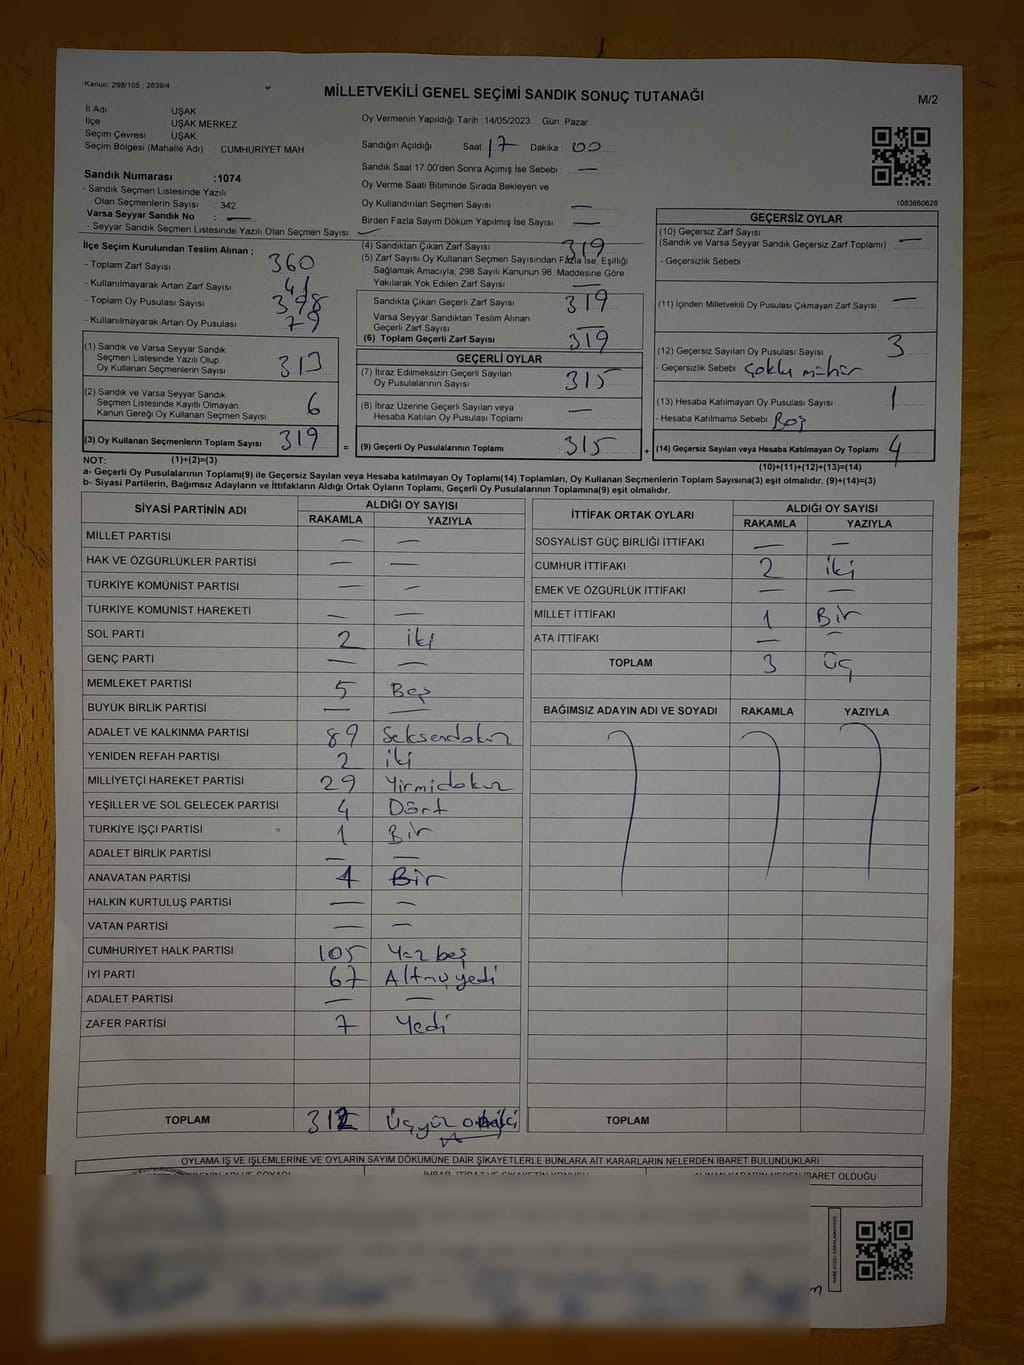 Kanun: 298/105 ; 2839/4
MİLLETVEKİLİ GENEL SEÇİMİ SANDIK SONUÇ TUTANAĞI
M/2
İl Adı UŞAK
İlçe UŞAK MERKEZ
Seçim Çevresi UŞAK
Seçim Bölgesi (Mahalle Adı) CUMHURİYET MAH.
Sandık Numarası :1074
- Sandık Seçmen Listesinde Yazılı
Olan Seçmenlerin Sayısı : 342
Varsa Seyyar Sandık No : —
- Seyyar Sandık Seçmen Listesinde Yazılı Olan Seçmen Sayısı:
Oy Vermenin Yapıldığı Tarih :14/05/2023 Gün: Pazar
Sandığın Açıldığı Saat 17 Dakika : 00
Sandık Saat 17:00'den Sonra Açımış İse Sebebi : —
Oy Verme Saati Bitiminde Sırada Bekleyen ve
Oy Kullandırılan Seçmen Sayısı —
Birden Fazla Sayım Döküm Yapılmış İse Sayısı —
1083660628
İlçe Seçim Kurulundan Teslim Alınan ;
- Toplam Zarf Sayısı 360
- Kullanılmayarak Artan Zarf Sayısı 41
- Toplam Oy Pusulası Sayısı 398
- Kullanılmayarak Artan Oy Pusulası 79
(1) Sandık ve Varsa Seyyar Sandık
Seçmen Listesinde Yazılı Olup
Oy Kullanan Seçmenlerin Sayısı 313
(2) Sandık ve Varsa Seyyar Sandık
Seçmen Listesinde Kayıtlı Olmayan
Kanun Gereği Oy Kullanan Seçmen Sayısı 6
(3) Oy Kullanan Seçmenlerin Toplam Sayısı 319
(4) Sandıktan Çıkan Zarf Sayısı 319
(5) Zarf Sayısı Oy Kullanan Seçmen Sayısından Fazla İse, Eşitliği
Sağlamak Amacıyla, 298 Sayılı Kanunun 98. Maddesine Göre
Yakılarak Yok Edilen Zarf Sayısı —
Sandıkta Çıkan Geçerli Zarf Sayısı 319
Varsa Seyyar Sandıktan Teslim Alınan
Geçerli Zarf Sayısı —
(6) Toplam Geçerli Zarf Sayısı 319
GEÇERLİ OYLAR
(7) İtiraz Edilmeksizin Geçerli Sayılan
Oy Pusulalarının Sayısı 315
(8) İtiraz Üzerine Geçerli Sayılan veya
Hesaba Katılan Oy Pusulası Toplamı —
= (9) Geçerli Oy Pusulalarının Toplamı 315
GEÇERSİZ OYLAR
(10) Geçersiz Zarf Sayısı
(Sandık ve Varsa Seyyar Sandık Geçersiz Zarf Toplamı) —
- Geçersizlik Sebebi
(11) İçinden Milletvekili Oy Pusulası Çıkmayan Zarf Sayısı —
(12) Geçersiz Sayılan Oy Pusulası Sayısı 3
- Geçersizlik Sebebi Çoklu mühür
(13) Hesaba Katılmayan Oy Pusulası Sayısı 1
- Hesaba Katılmama Sebebi Boş
+ (14) Geçersiz Sayılan veya Hesaba Katılmayan Oy Toplamı : 4
NOT: (1)+(2)=(3) (10)+(11)+(12)+(13)=(14)
a- Geçerli Oy Pusulalarının Toplamı(9) ile Geçersiz Sayılan veya Hesaba katılmayan Oy Toplamı(14) Toplamları, Oy Kullanan Seçmenlerin Toplam Sayısına(3) eşit olmalıdır. (9)+(14)=(3)
b- Siyasi Partilerin, Bağımsız Adayların ve İttifakların Aldığı Ortak Oyların Toplamı, Geçerli Oy Pusulalarının Toplamına(9) eşit olmalıdır.
SİYASİ PARTİNİN ADI ALDIĞI OY SAYISI
RAKAMLA YAZIYLA
MİLLET PARTİSİ — —
HAK VE ÖZGÜRLÜKLER PARTİSİ — —
TÜRKİYE KOMÜNİST PARTİSİ — —
TÜRKİYE KOMÜNİST HAREKETİ — —
SOL PARTİ 2 iki
GENÇ PARTİ — —
MEMLEKET PARTİSİ 5 Beş
BÜYÜK BİRLİK PARTİSİ — —
ADALET VE KALKINMA PARTİSİ 89 Seksendokuz
YENİDEN REFAH PARTİSİ 2 iki
MİLLİYETÇİ HAREKET PARTİSİ 29 Yirmidokuz
YEŞİLLER VE SOL GELECEK PARTİSİ 4 Dört
TÜRKİYE İŞÇİ PARTİSİ 1 Bir
ADALET BİRLİK PARTİSİ — —
ANAVATAN PARTİSİ 1 Bir
HALKIN KURTULUŞ PARTİSİ — —
VATAN PARTİSİ — —
CUMHURİYET HALK PARTİSİ 105 Yüz beş
İYİ PARTİ 67 Altmışyedi
ADALET PARTİSİ — —
ZAFER PARTİSİ 7 Yedi
TOPLAM 312 Üçyüz
İTTİFAK ORTAK OYLARI ALDIĞI OY SAYISI
RAKAMLA YAZIYLA
SOSYALİST GÜÇ BİRLİĞİ İTTİFAKI — —
CUMHUR İTTİFAKI 2 iki
EMEK VE ÖZGÜRLÜK İTTİFAKI — —
MİLLET İTTİFAKI 1 Bir
ATA İTTİFAKI — —
TOPLAM 3 Üç
BAĞIMSIZ ADAYIN ADI VE SOYADI RAKAMLA YAZIYLA
TOPLAM
OYLAMA İŞ VE İŞLEMLERİNE VE OYLARIN SAYIM DÖKÜMÜNE DAİR ŞİKAYETLERLE BUNLARA AİT KARARLARIN NELERDEN İBARET BULUNDUKLARI
İBARET OLDUĞU